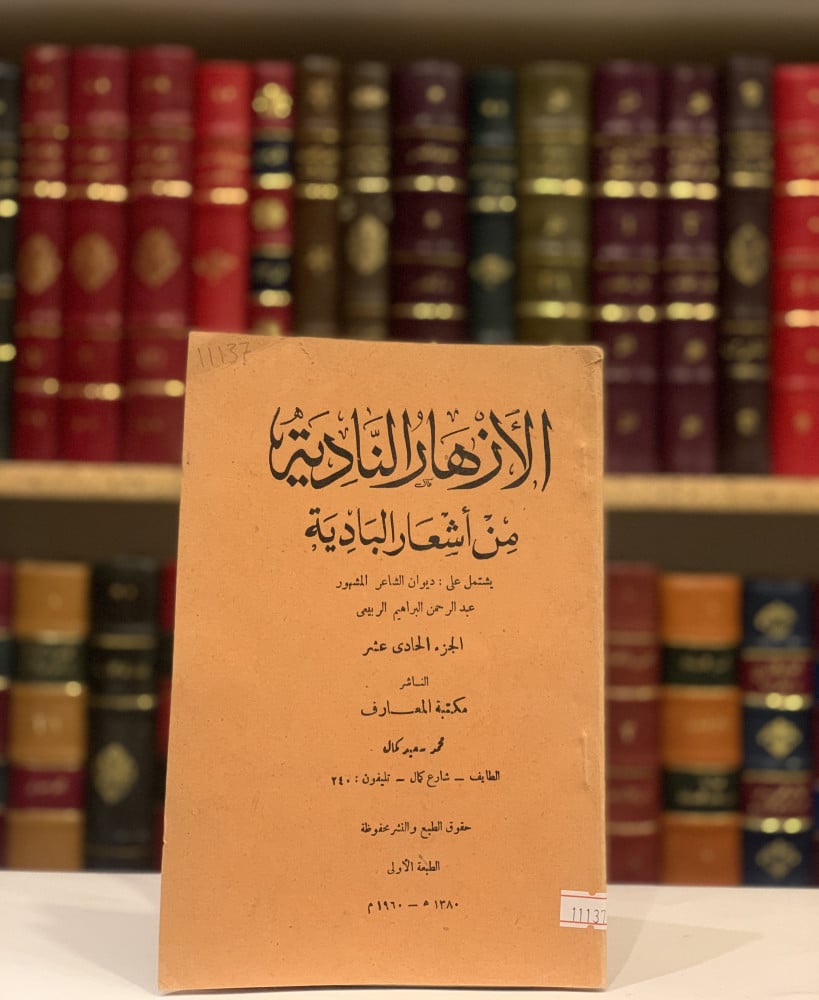 11137
الأزهار النَّادِيَة
مِنْ أشعَار البَادِيَة
يشتمل على : ديوان الشاعر المشهور
عبد الرحمن البراهيم الربيعى
الجزء الحادى عشر
الناشر
مكتبة المعـــارف
محمد سعيد كمال
الطايف ــ شارع كمال ــ تليفون : ٢٤٠
حقوق الطبع والنشر محفوظة
الطبعة الأولى
١٣٨٠ ه ــ ١٩٦٠ م
11137